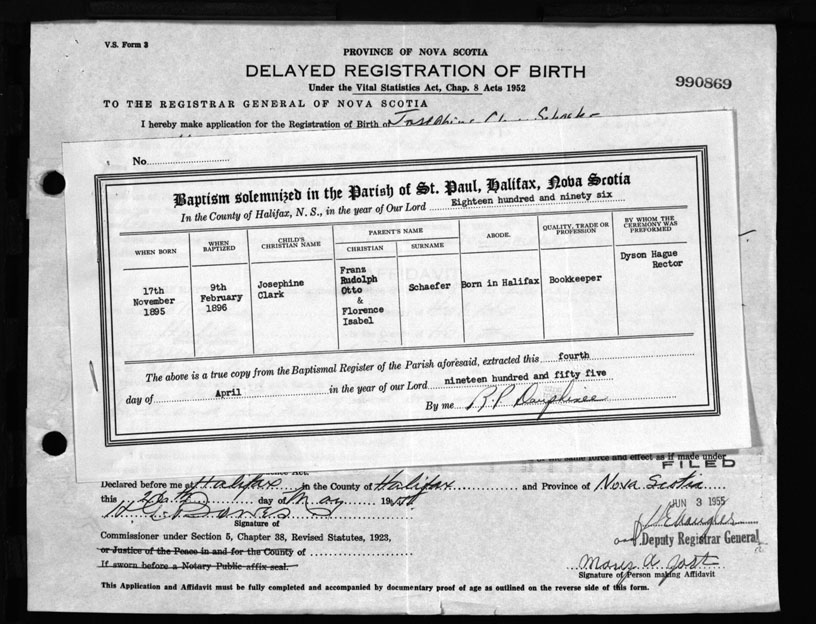 V.S. Form 3
PROVINCE OF NOVA SCOTIA
DELAYED REGISTRATION OF BIRTH
990869
Under the Vital Statistics Act, Chap. 8 Acts 1952
TO THE REGISTRAR GENERAL OF NOVA SCOTIA
I hereby make application for the Registration of Birth of Josephine
No.
Baptism solemnized in the Parish of St. Paul, Halifax, Nova Scotia
In the County of Halifax, N. S., in the year of Our Lord Eighteen hundred and ninety six
WHEN BORN
WHEN BAPTIZED
CHILD'S CHRISTIAN NAME
PARENT'S NAME
CHRISTIAN
SURNAME
ABODE.
QUALITY, TRADE OR PROFESSION
BY WHOM THE CEREMONY WAS PREFORMED
17th November 1895
9th February 1896
Josephine Clark
Franz Rudolph Otto & Florence Isabel
Schaefer
Born in Halifax
Bookkeeper
Dyson Hague Rector
The above is a true copy from the Baptismal Register of the Parish aforesaid, extracted this fourth
day of April in the year of our Lord nineteen hundred and fifty five
By me R.P. Dauphinee
same force and effect as if made under
FILED
Declared before me at Halifax in the County of Halifax and Province of Nova Scotia
this 26th day of May 19
JUN 3 1955
Signature of
Commissioner under Section 5, Chapter 38, Revised Statutes, 1923,
Deputy Registrar General
or Justice of the Peace in and for the County of
If sworn before a Notary Public affix seal.
Mary A. Jost
Signature of Person making Affidavit
This Application and Affidavit must be fully completed and accompanied by documentary proof of age as outlined on the reverse side of this form.